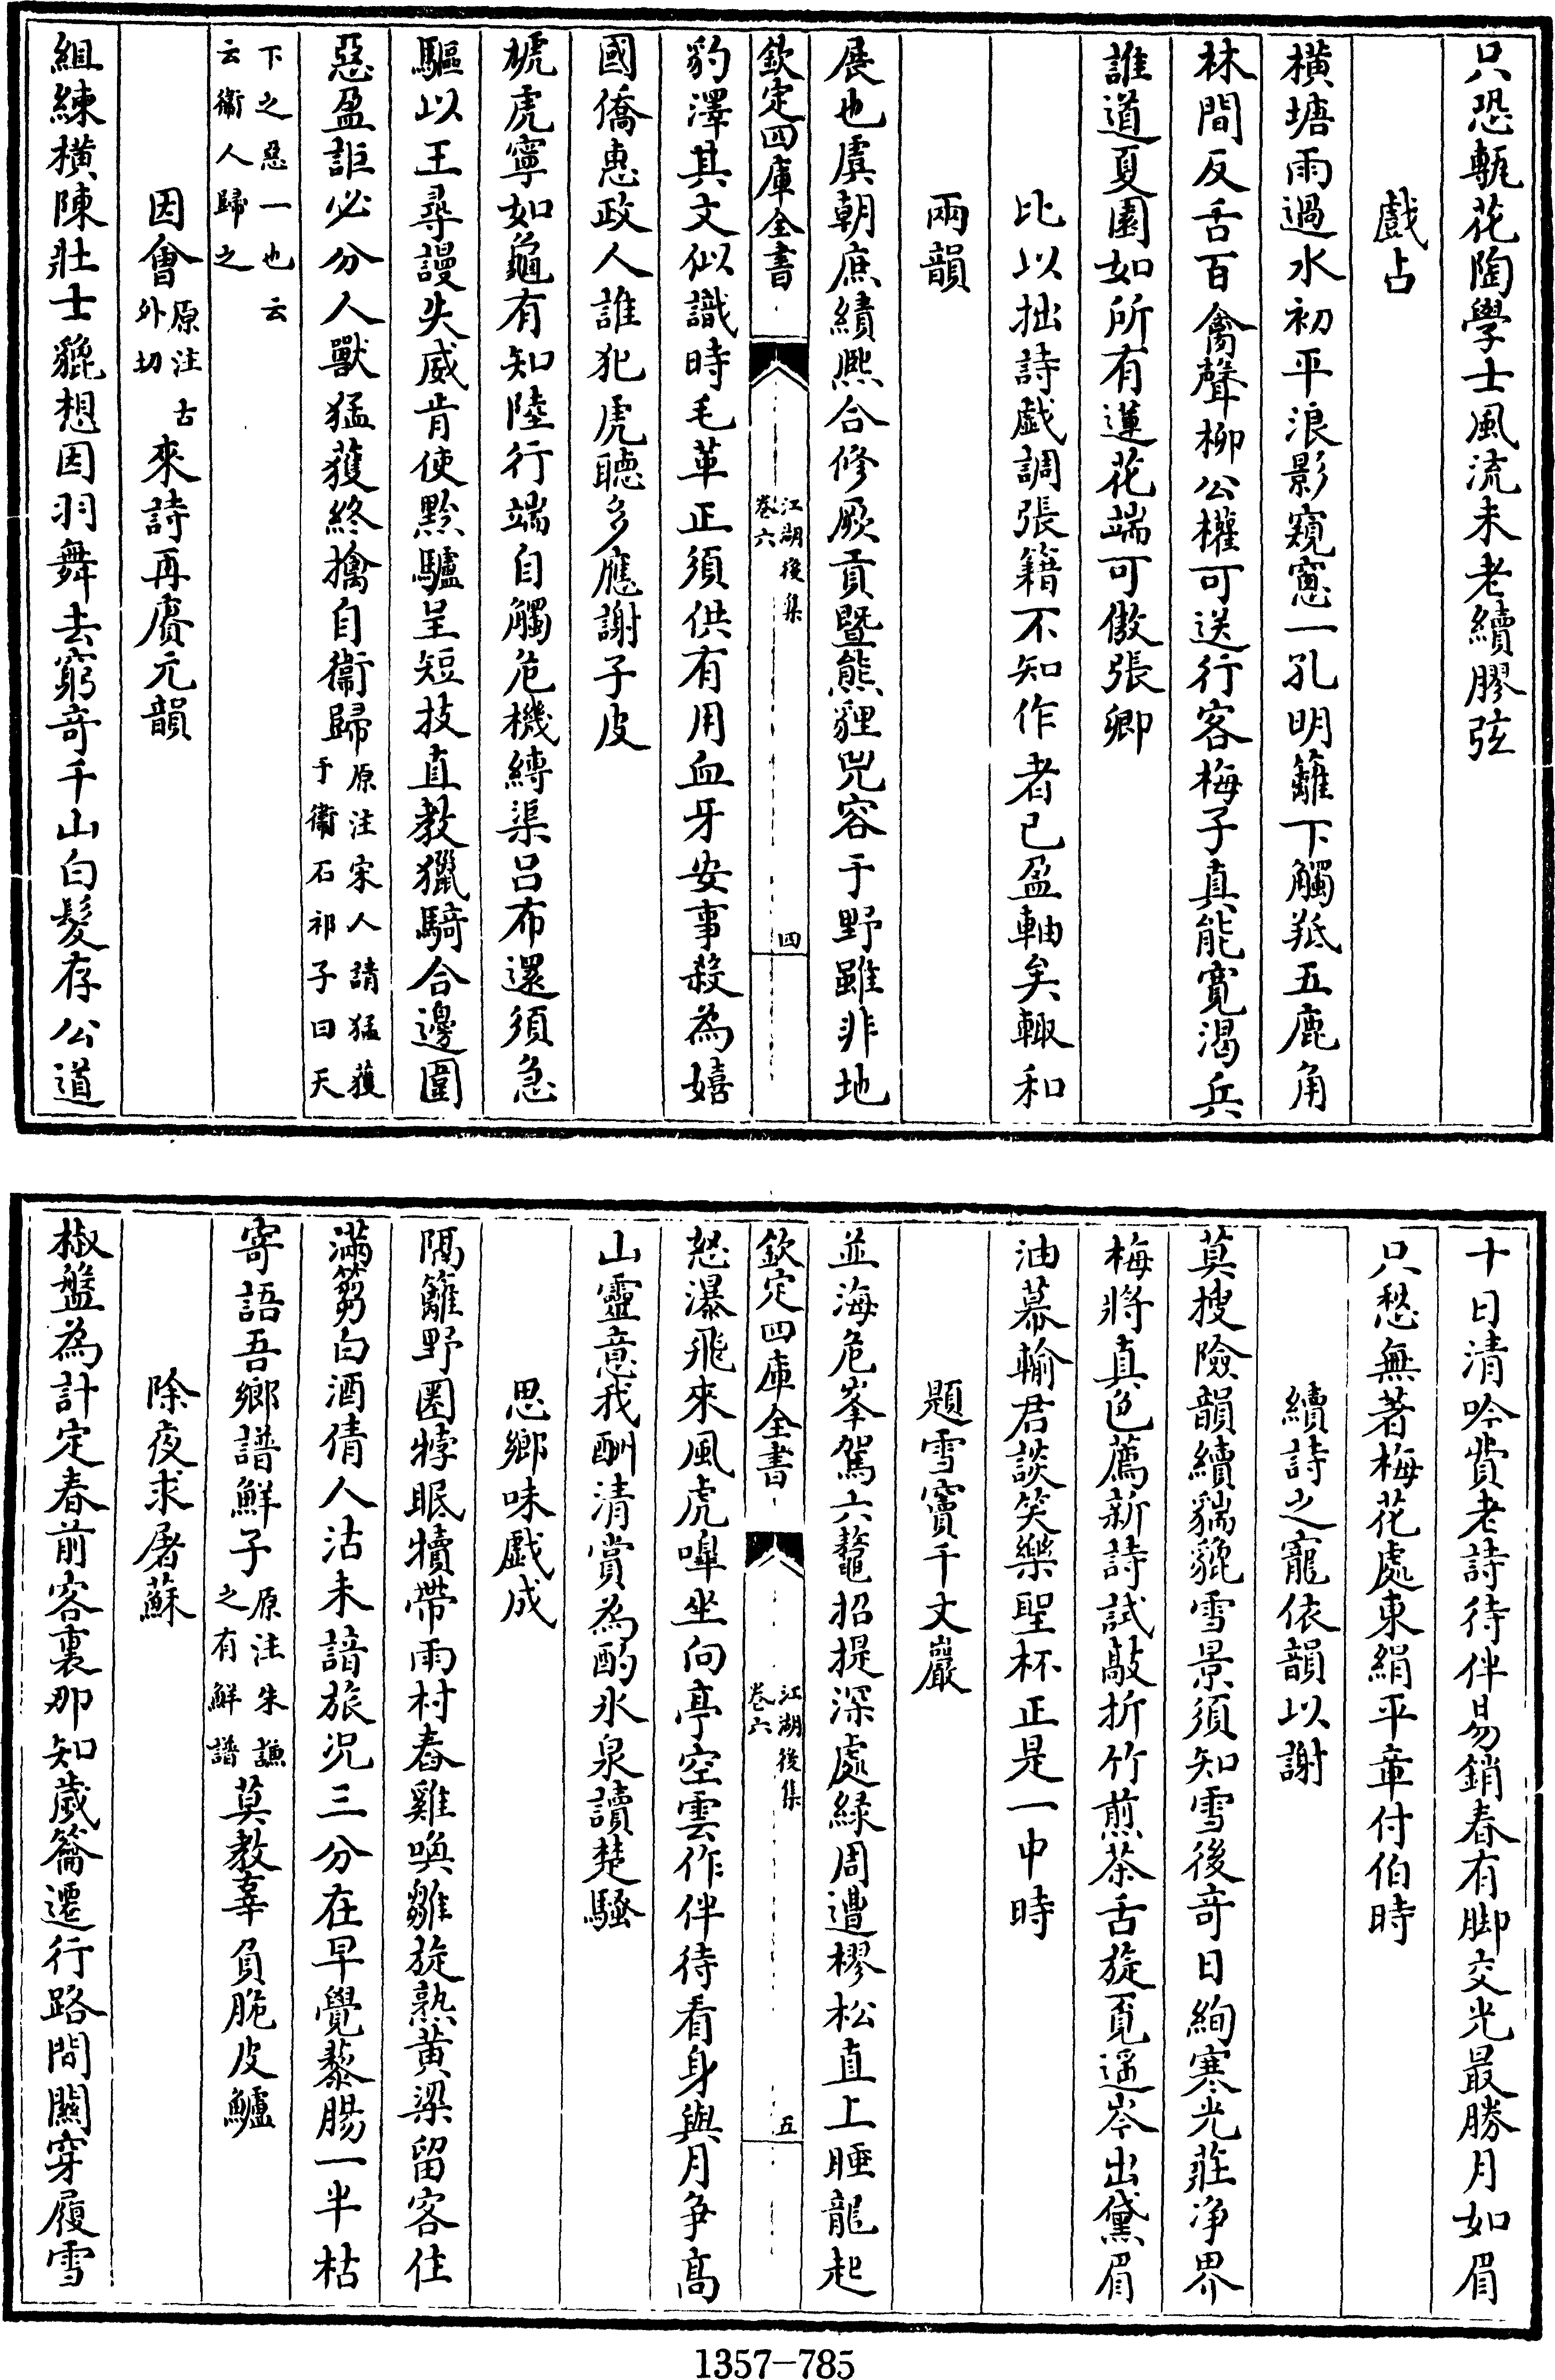 只恐甎花陶學士風流未老續膠弦
戲占
橫塘雨過水初平浪影窺窻一孔明籬下觸羝五鹿角
林間反舌百禽聲柳公權可送行客梅子真能寬渴兵
誰道夏園如所有蓮花端可傲張卿
比以拙詩戯調張籍不知作者已盈軸矣輙和
兩韻
展也虞朝庶績熈合修厥貢暨熊貍兕容于野雖非地
欽定四庫全書
江湖後集
卷六
四
豹澤其文似識時毛革正須供有用血牙安事殺為嬉
國僑惠政人誰犯虎聴多應謝子皮
螔虎寧如龜有知陸行端自觸危機縳渠吕布還須急
驅以王尋謾失威肯使黔驢呈短技直教獵騎合邊圍
惡盈詎必分人獸猛獲終擒自衞歸原注宋人請猛獲
于衞石祁子曰天
下之惡一也云
云衞人歸之
因會原注古
外切來詩再賡元韻
組練橫陳壯士貔想因羽舞去窮竒千山白髮存公道
十日清吟貲老詩待伴易銷春有脚交光最勝月如眉
只愁無著梅花處東絹平章付伯時
續詩之寵依韻以謝
莫搜險韻續貒貔雪景須知雪後竒日絢寒光莊净界
梅將真色薦新詩試敲折竹煎茶舌旋覓遥岑出黛眉
油幕輸君談笑樂聖杯正是一中時
題雪竇千丈巖
並海危峯駕六鼇招提深處緑周遭樛松直上睡龍起
欽定四庫全書
江湖後集
卷六
五
怒瀑飛來風虎嘷坐向亭空雲作伴待看身與月争髙
山靈意我酬清賞為酌氷泉讀楚騷
思鄉味戯成
隔籬野圏牸眠犢帶雨村舂雞喚雛旋熟黄粱留客住
滿篘白酒倩人沽未諳旅况三分在早覺藜腸一半枯
寄語吾鄉譜鮮子原注朱譓
之有鮮譜莫教辜負脆皮鱸
除夜求屠蘇
椒盤為計定春前客裏那知嵗籥遷行路間關穿履雪
1357-785